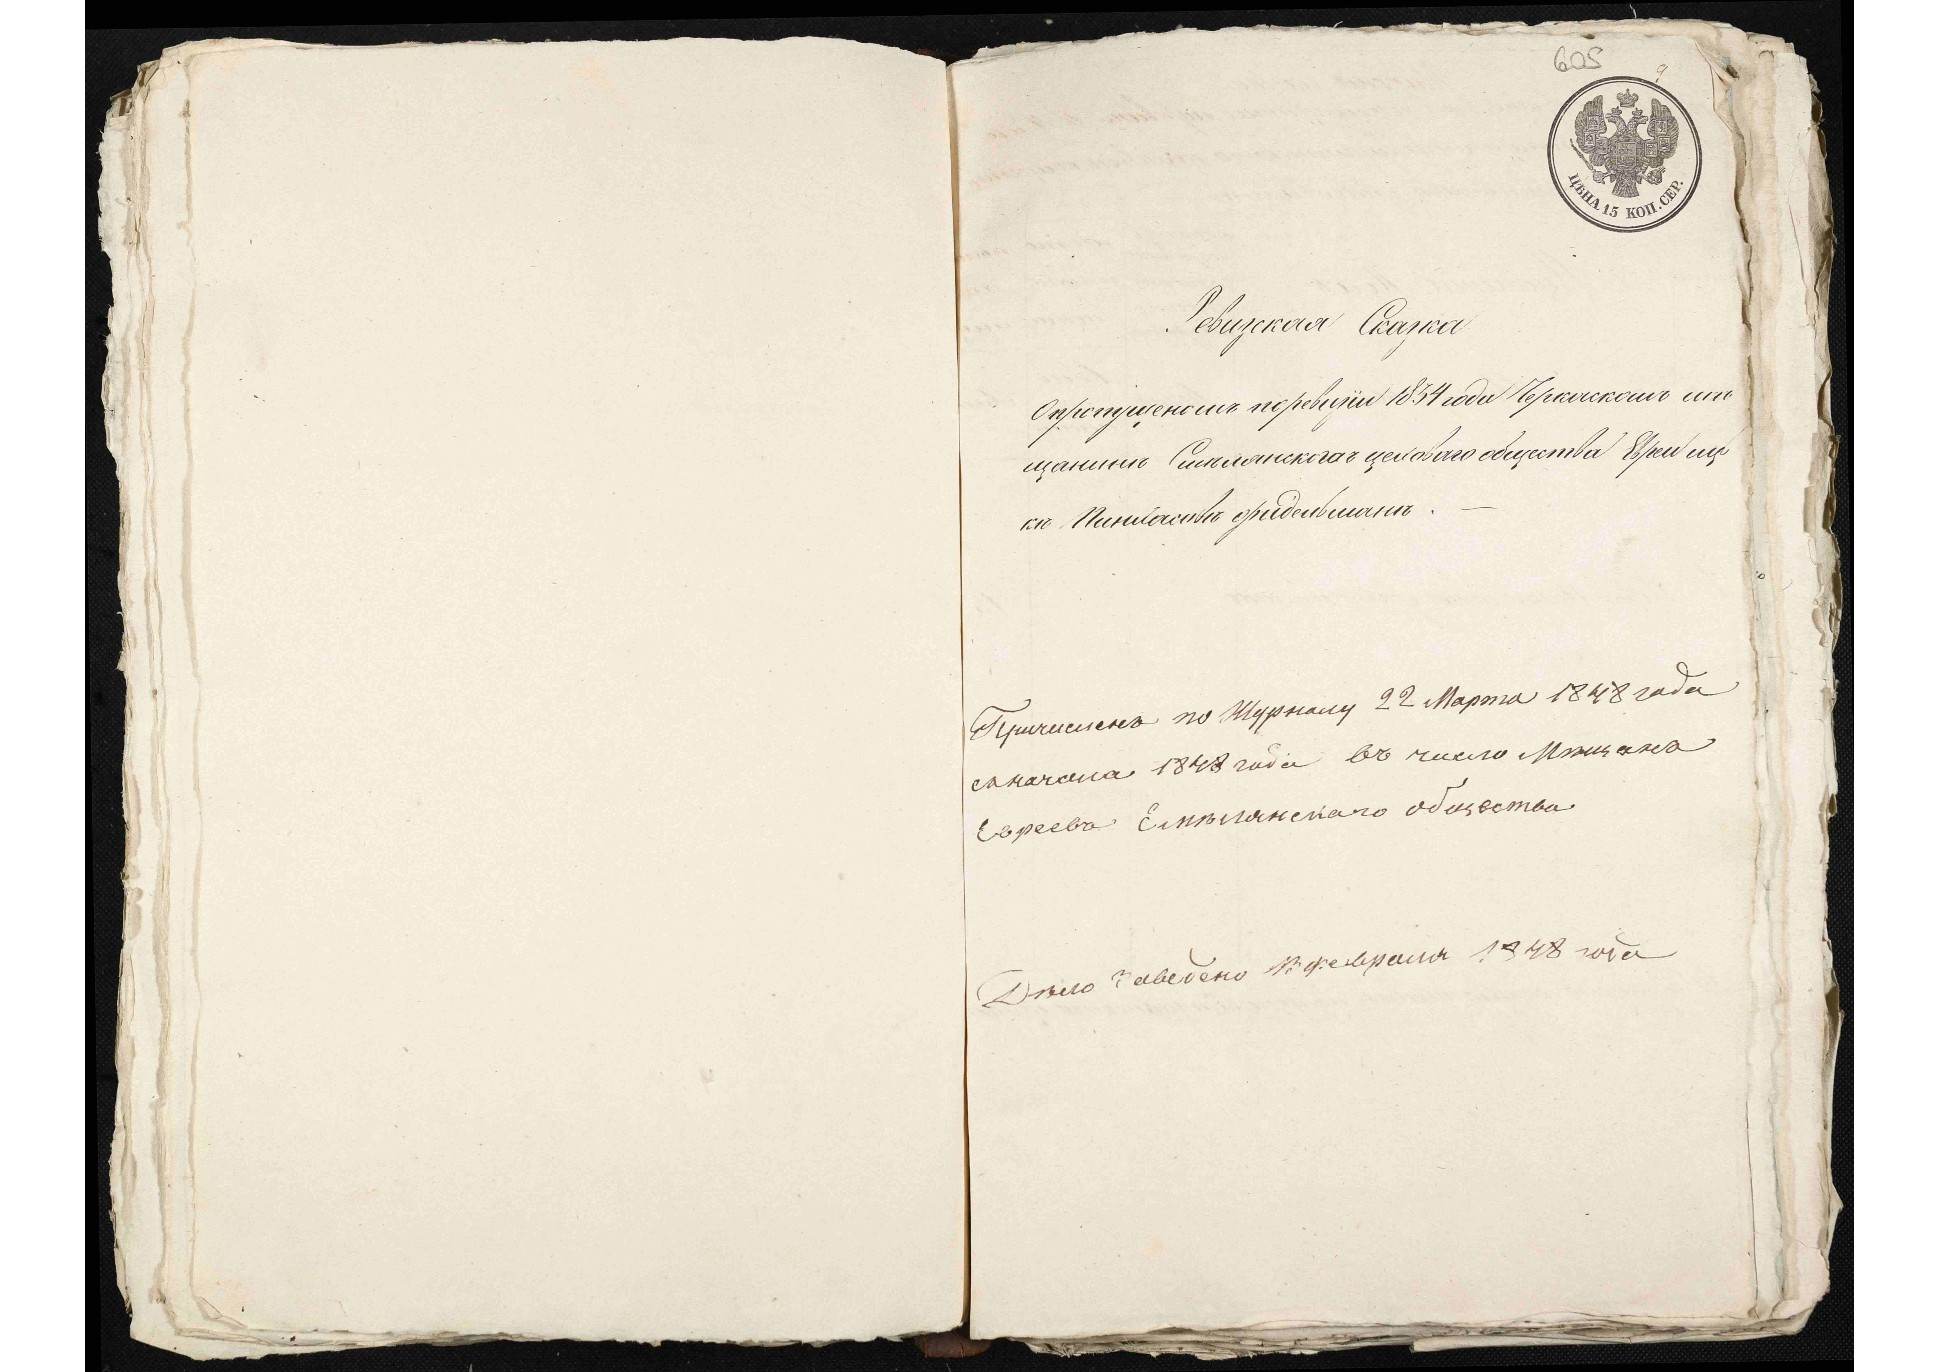 605
9
ЦѢНА 15 КОП. СЕР.
Ревизская Сказка
О пропущеномъ по ревизіи 1834 года Черкаскомъ мѣ
щанинѣ Смѣлянскога цеховаго общества Еврей
Пинхасовѣ Фридельманѣ. —
Причисленъ по Журналу 22 Марта 1848 года
съ начала 1848 года въ число Мѣщанъ
Евреевъ Смѣлянскаго общества
Дѣло заведено февраля 1848 года